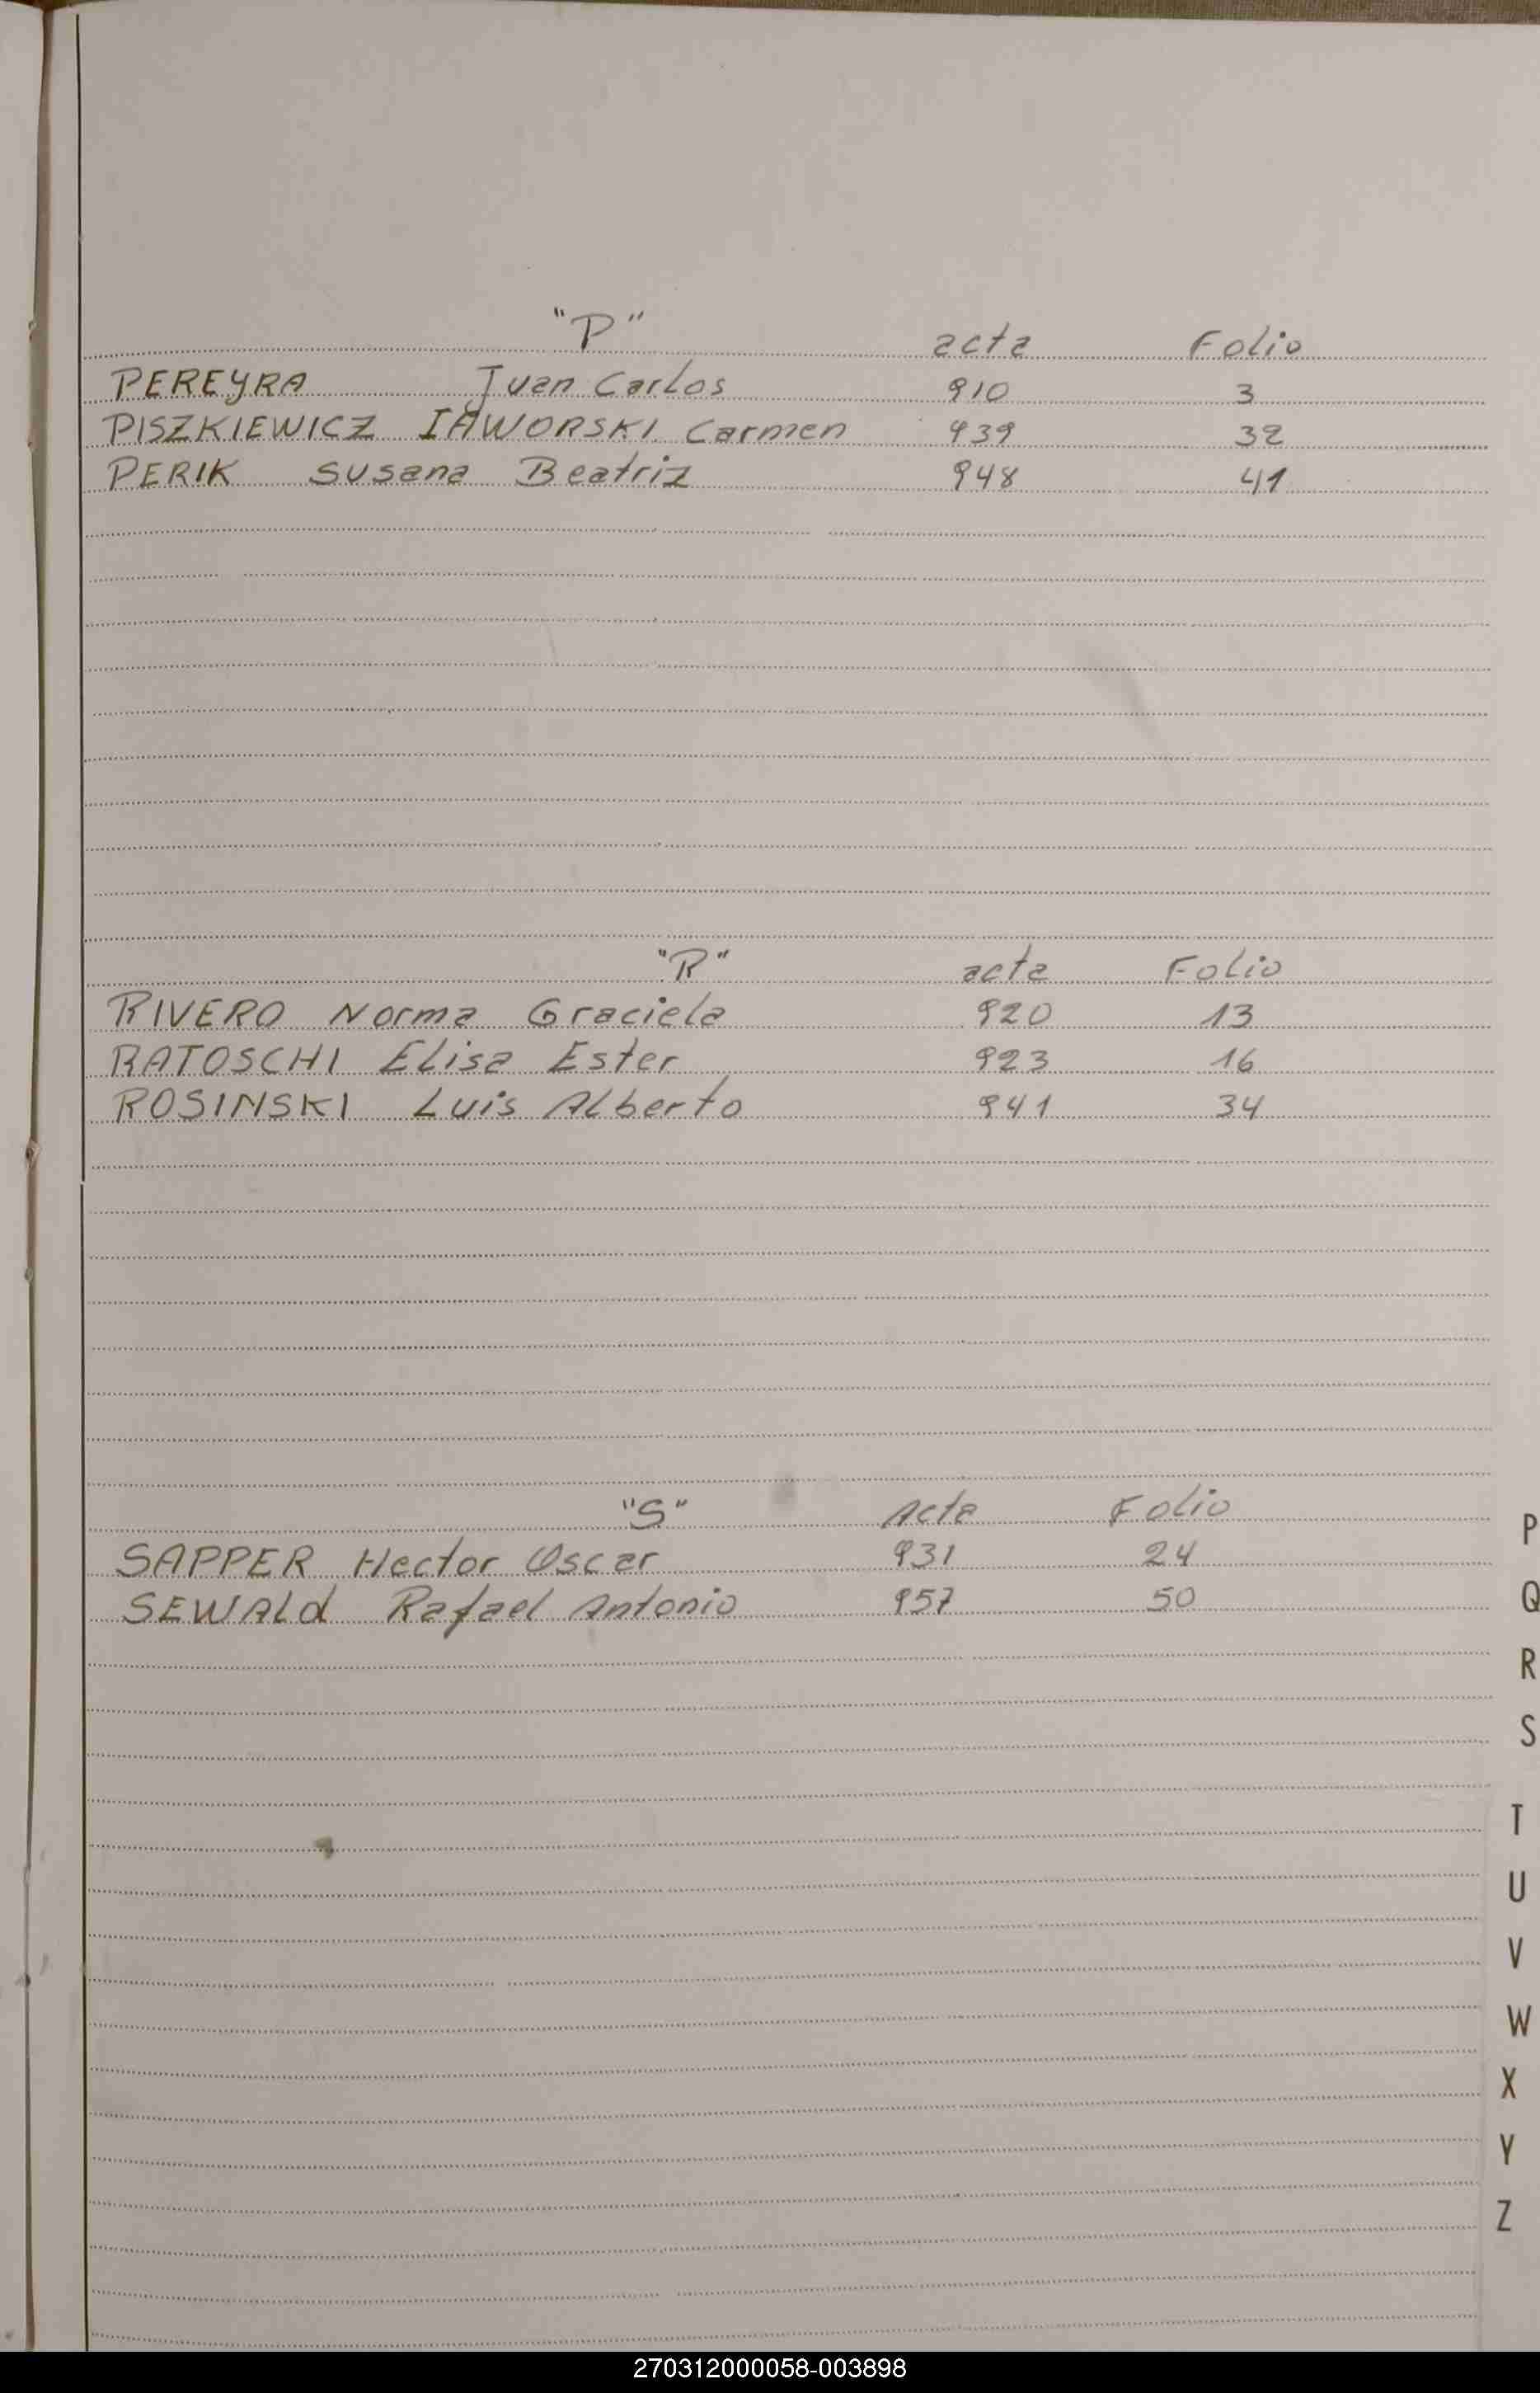 "P" acta Folio
PEREYRA Juan Carlos 910 3
PISZKIEWICZ IAWORSKI Carmen 939 32
PERIK Susana Beatriz 948 41
"R" acta Folio
RIVERO Norma Graciela 920 13
RATOSCHI Elisa Ester 923 16
ROSINSKI Luis Alberto 941 34
"S" Acta Folio
SAPPER Hector Oscar 931 24
SEWALd Rafael Antonio 957 50
P
Q
R
S
T
U
V
W
X
Y
Z
270312000058-003898